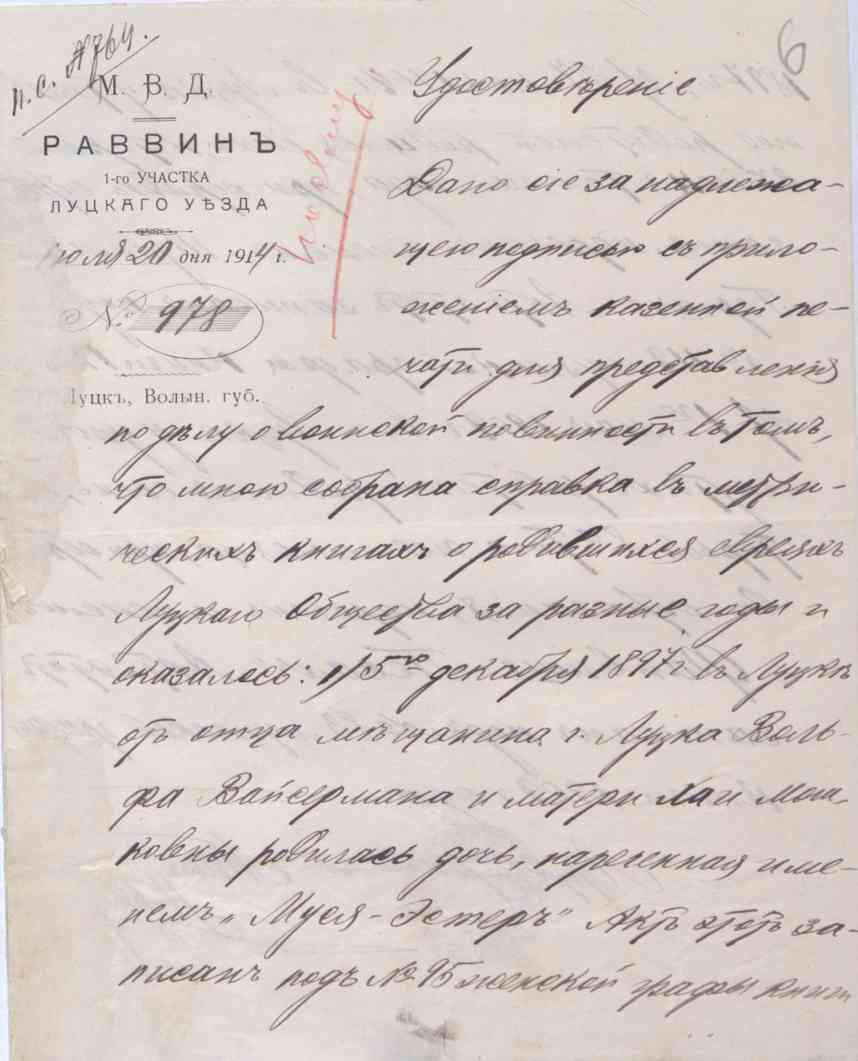 п. с. № 764.
6
М. В. Д.
РАВВИНЪ
1-го УЧАСТКА
ЛУЦКАГО УѢЗДА
юля 20 дня 1914 г.
№ 978
Луцкъ, Волын. губ.
Удостовѣреніе
Дано сіе за надлежа-
щею подписью съ прило-
женіемъ казенной пе-
чати для представленія
по дѣлу о воинской повинности въ томъ,
что мною собрана справка въ метри-
ческихъ книгахъ о родившихся евреяхъ
Луцкаго Общества за разные годы и
оказалось: 1) 5го декабря 1897 г. въ Луцкѣ
отъ отца мѣщанина г. Луцка Воль-
фа Вайсермана и матери Хаи Мош-
ковны родилась дочь, нареченная име-
немъ „Муся-Эстеръ" Актъ этотъ за-
писанъ подъ № 95 женской графы книги